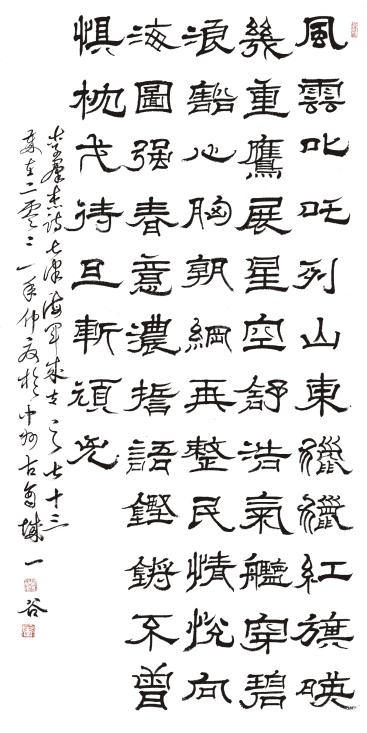 風雲叱吒列山東獵獵紅旗映
幾重鷹展星空舒浩氣艦穿碧
浪豁心胸朝綱再整民情悅向
海圖强春意濃誓語鏗鏘不曾
惧枕戈待旦斬頑兇
詩七律海軍成立之七十三
歲在二零二一年仲夏於中州古商城一谷